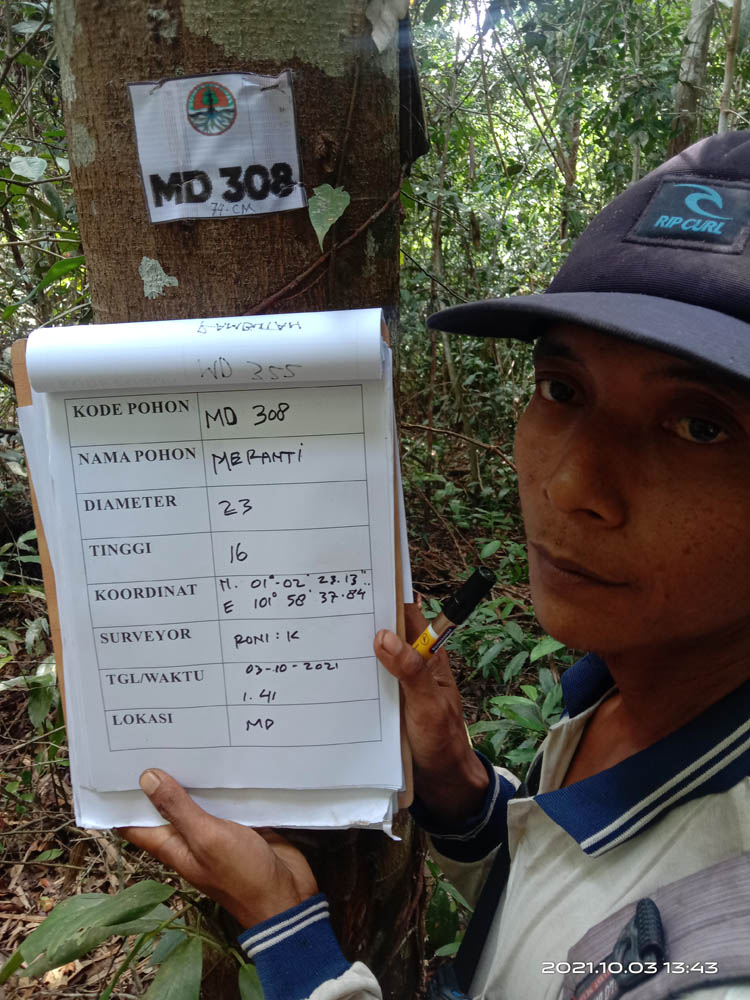 MD 308
74 CM
RIP CURL
WD 355
KODE POHON MD 308
NAMA POHON MERANTI
DIAMETER 23
TINGGI 16
KOORDINAT N. 01° 02' 23.13"
E 101° 58' 37.84
SURVEYOR RONI : K
TGL/WAKTU 03-10-2021
1.41
LOKASI MD
2021.10.03 13:43